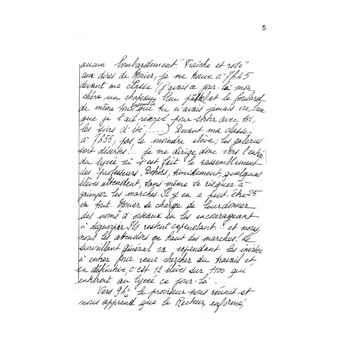 5
aucun bombardement "Fraîche et rose"
aux dires de Monier, je me trouve à 7h45
devant ma classe (j'avais ce jour-là, ma
chère, un chapeau bleu pastel et le foulard
de même ton que tu n'avais jamais vu
que je l'aie pour sortir avec toi,
les soirs d'été !...) Devant ma classe,
à 7h55, pas le moindre élève, les galeries
sont désertes ! je me dirige donc vers l'entrée
du lycée où s'est fait le rassemblement
des professeurs. Dehors, timidement, quelques
élèves attendent, sans même se risquer à
grimper les marches. Il y en a peut-être 25
en tout. Monier se charge de
des noms d'oiseaux en les encourageant
à déguerpir. Ils restent cependant ! et nous,
nous les attendons en haut des marches. Le
surveillant général va cependant les inviter
à entrer pour venir chercher du travail et
en définitive, c'est 12 élèves sur 700 qui
entrèrent au lycée ce jour-là.
Vers 9h le proviseur nous réunit et
nous apprend que le Recteur, informé